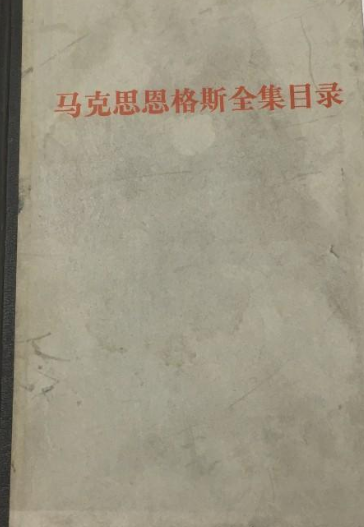 马克思恩格斯全集目录